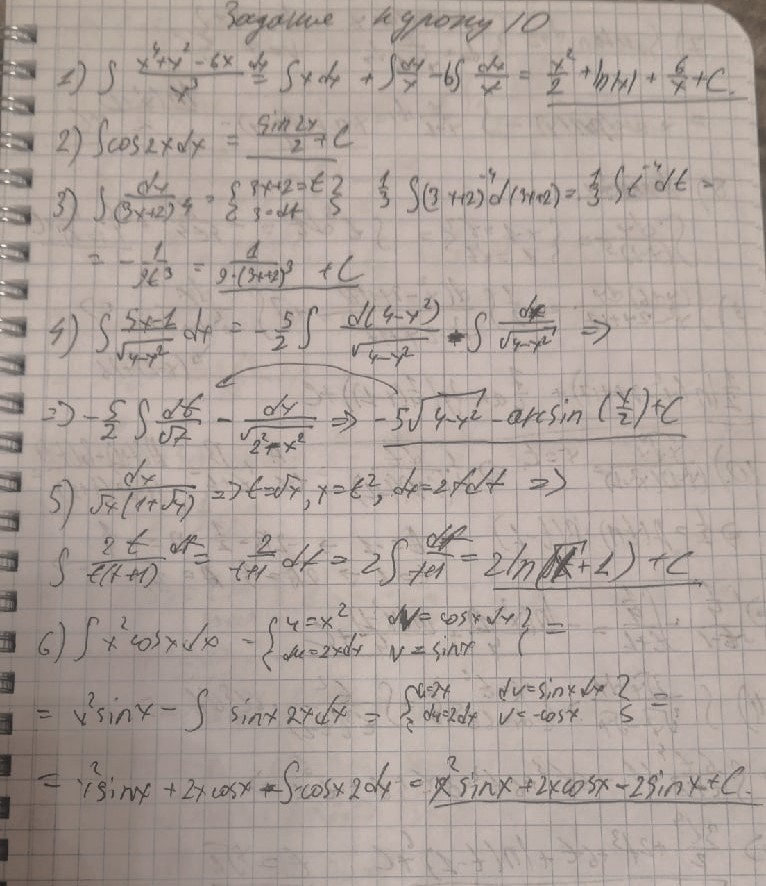 Задание к уроку 10
1) ∫ (x⁴+x²-6x)/x³ dx = ∫x dx + ∫dx/x - 6∫ dx/x = x²/2 + ln|x| + 6/x + C.
2) ∫cos2x dx = sin2x/2 + C
3) ∫ dx/(3x+2)⁴ = { 3x+2=t 3=dt } 1/3 ∫(3x+2)⁻⁴ d(3x+2) = 1/3 ∫t⁻⁴dt =
= - 1/9t³ = 1/9·(3x+2)³ + C
4) ∫ (5x-1)/√(4-x²) dx = -5/2 ∫ d(4-x²)/√(4-x²) - ∫ dx/√(4-x²) =>
=> -5/2 ∫ dt/√t - dx/√(2²-x²) => -5√(4-x²) - arcsin (x/2) + C
5) dx/√x(1+√x) => t=√x, x=t², dx=2tdt =>
∫ 2t/t(t+1) dt = 2/(t+1) dt = 2∫ dt/(t+1) = 2ln(√x+1) + C
6) ∫ x²cosx dx - { u=x² dv=cosx dx du=2xdx v=sinx } =
= x²sinx - ∫ sinx 2xdx = { u=2x dv=sinx dx du=2dx v=-cosx } =
= x²sinx + 2xcosx - ∫cosx 2dx = x²sinx + 2xcosx - 2sinx + C.